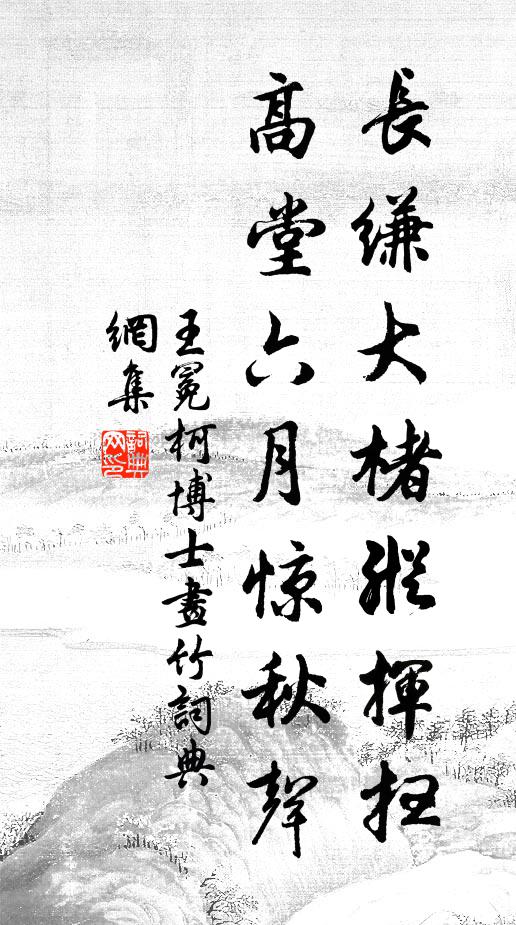 長縑大楮縱揮掃
高堂六月惊秋聲
王冕柯博士畫竹詞典
網集
詞典
网印